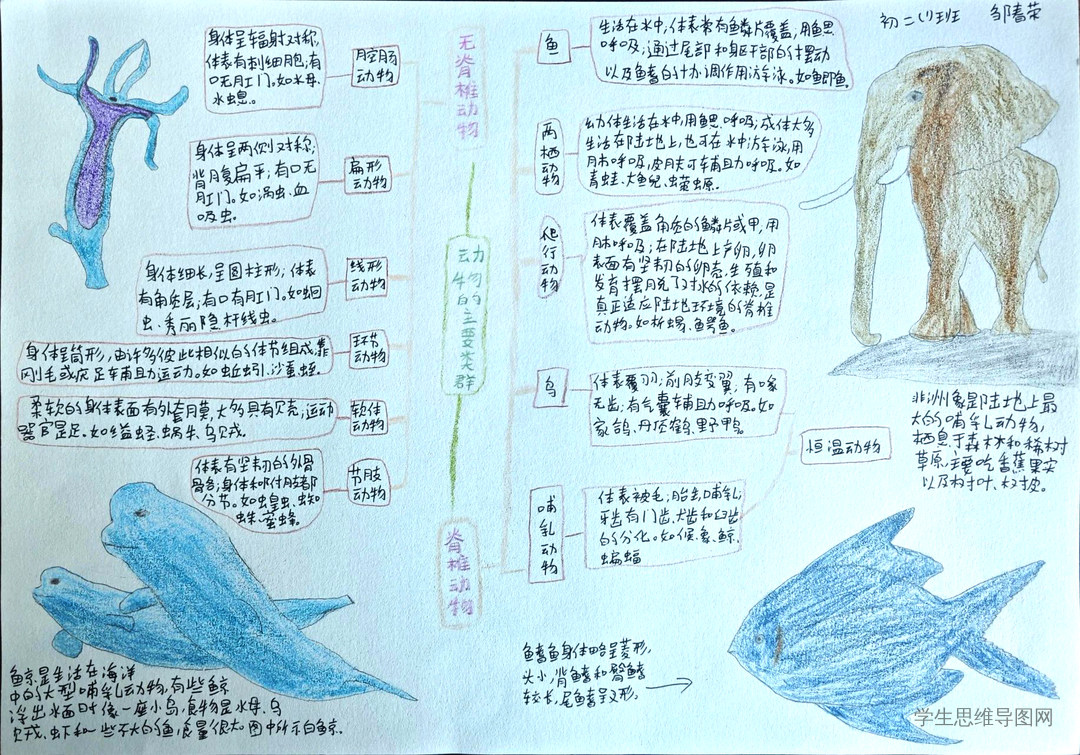 初二(1)班 邹春荣
动物的主要类群
无脊椎动物
腔肠
动物
身体呈辐射对称,
体表有刺细胞,有
口无肛门。如水母、
水螅。
扁形
动物
身体呈两侧对称;
背腹扁平;有口无
肛门。如涡虫、血
吸虫。
线形
动物
身体细长,呈圆柱形;体表
有角质层;有口有肛门。如蛔
虫、秀丽隐杆线虫。
环节
动物
身体呈筒形,由许多彼此相似的体节组成,靠
刚毛或疣足辅助运动。如蚯蚓、沙蚕、蛭。
软体
动物
柔软的身体表面有外套膜,大多具有贝壳;运动
器官是足。如缢蛏、蜗牛、乌贼。
节肢
动物
体表有坚韧的外骨
骼;身体和附肢都
分节。如蝗虫、蜘
蛛、蜜蜂。
脊椎动物
鱼
生活在水中,体表常有鳞片覆盖,用鱼鳃
呼吸;通过尾部和躯干部的摆动
以及鱼鳍的协调作用游泳。如鲫鱼。
两栖动物
幼体生活在水中,用鱼鳃呼吸;成体大多
生活在陆地上,也可在水中游泳,用
肺呼吸,皮肤可辅助呼吸。如
青蛙、大鲵、蝾螈。
爬行动物
体表覆盖角质的鳞片或甲,用
肺呼吸;在陆地上产卵,卵
表面有坚韧的卵壳,生殖和
发育摆脱了对水的依赖,是
真正适应陆地环境的脊椎
动物。如蜥蜴、鳄鱼。
鸟
体表覆羽;前肢变翼,有喙
无齿;有气囊辅助呼吸。如
家鸽、丹顶鹤、野鸭。
哺乳动物
体表被毛;胎生,哺乳;
牙齿有门齿、犬齿和臼齿
的分化。如猴、象、鲸、
蝙蝠
恒温动物
非洲象是陆地上最
大的哺乳动物,
栖息于森林和稀树
草原,主要吃香蕉果实
以及树叶、树皮。
鱼鳍鱼身体略呈菱形,
头小,背鳍和臀鳍
较长,尾鳍呈叉形,
鲸是生活在海洋
中的大型哺乳动物,有些鲸
浮出水面时像一座小岛,食物是水母、乌
贼、虾和一些不大的鱼,食量很大。图中所示白鲸.
学生思维导图网